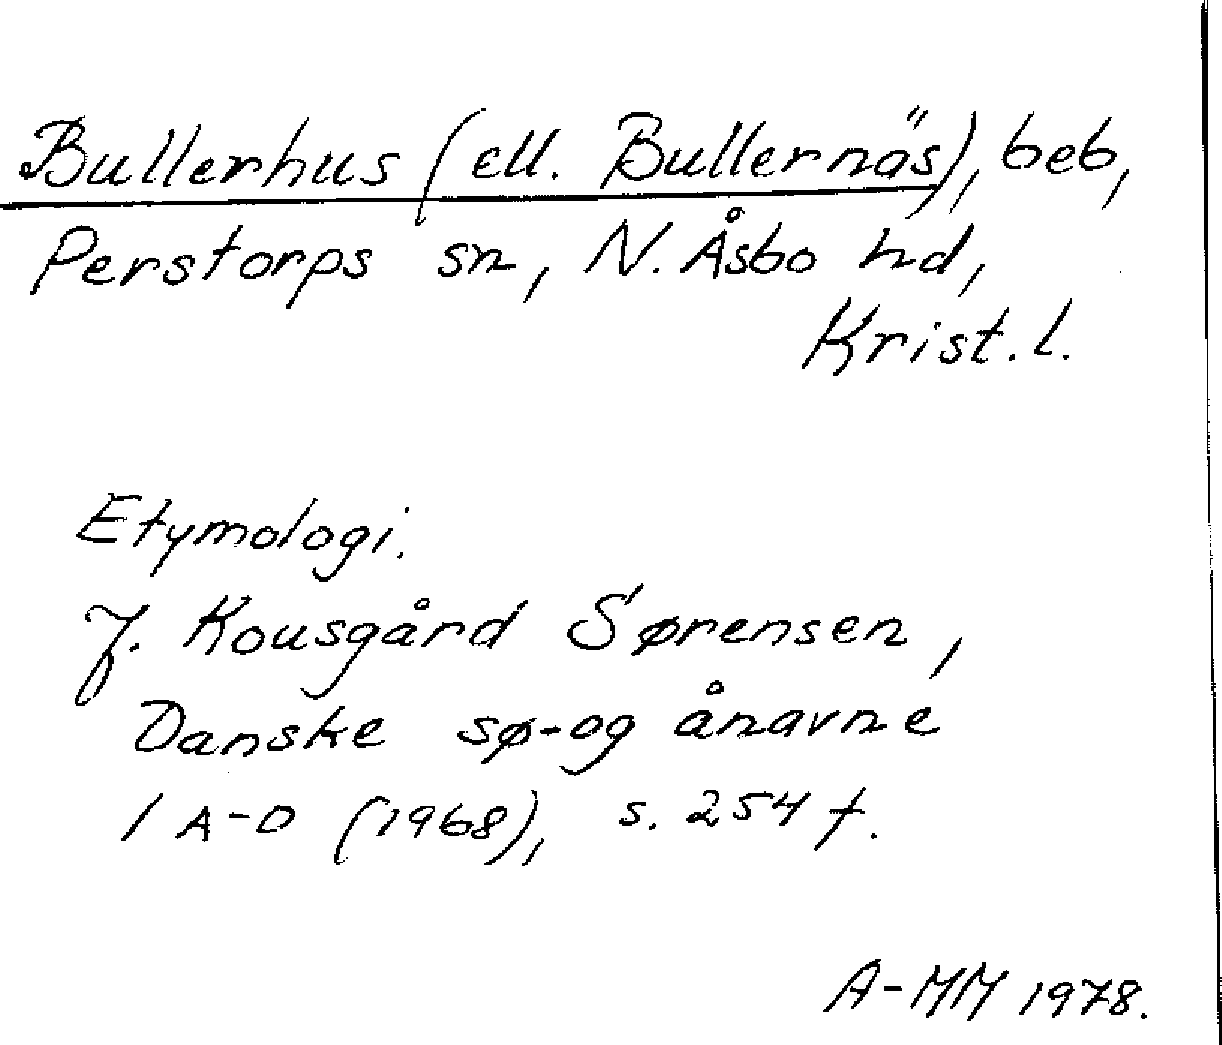 Bullerhus (ell. Bullernäs), beb,
Perstorps sn, N. Åsbo hd,
Krist. l.
Etymologi.
J. Kousgård Sørensen,
Danske sø- og ånavne
1 A-D (1968), s. 254 f.
A-MM 1978.